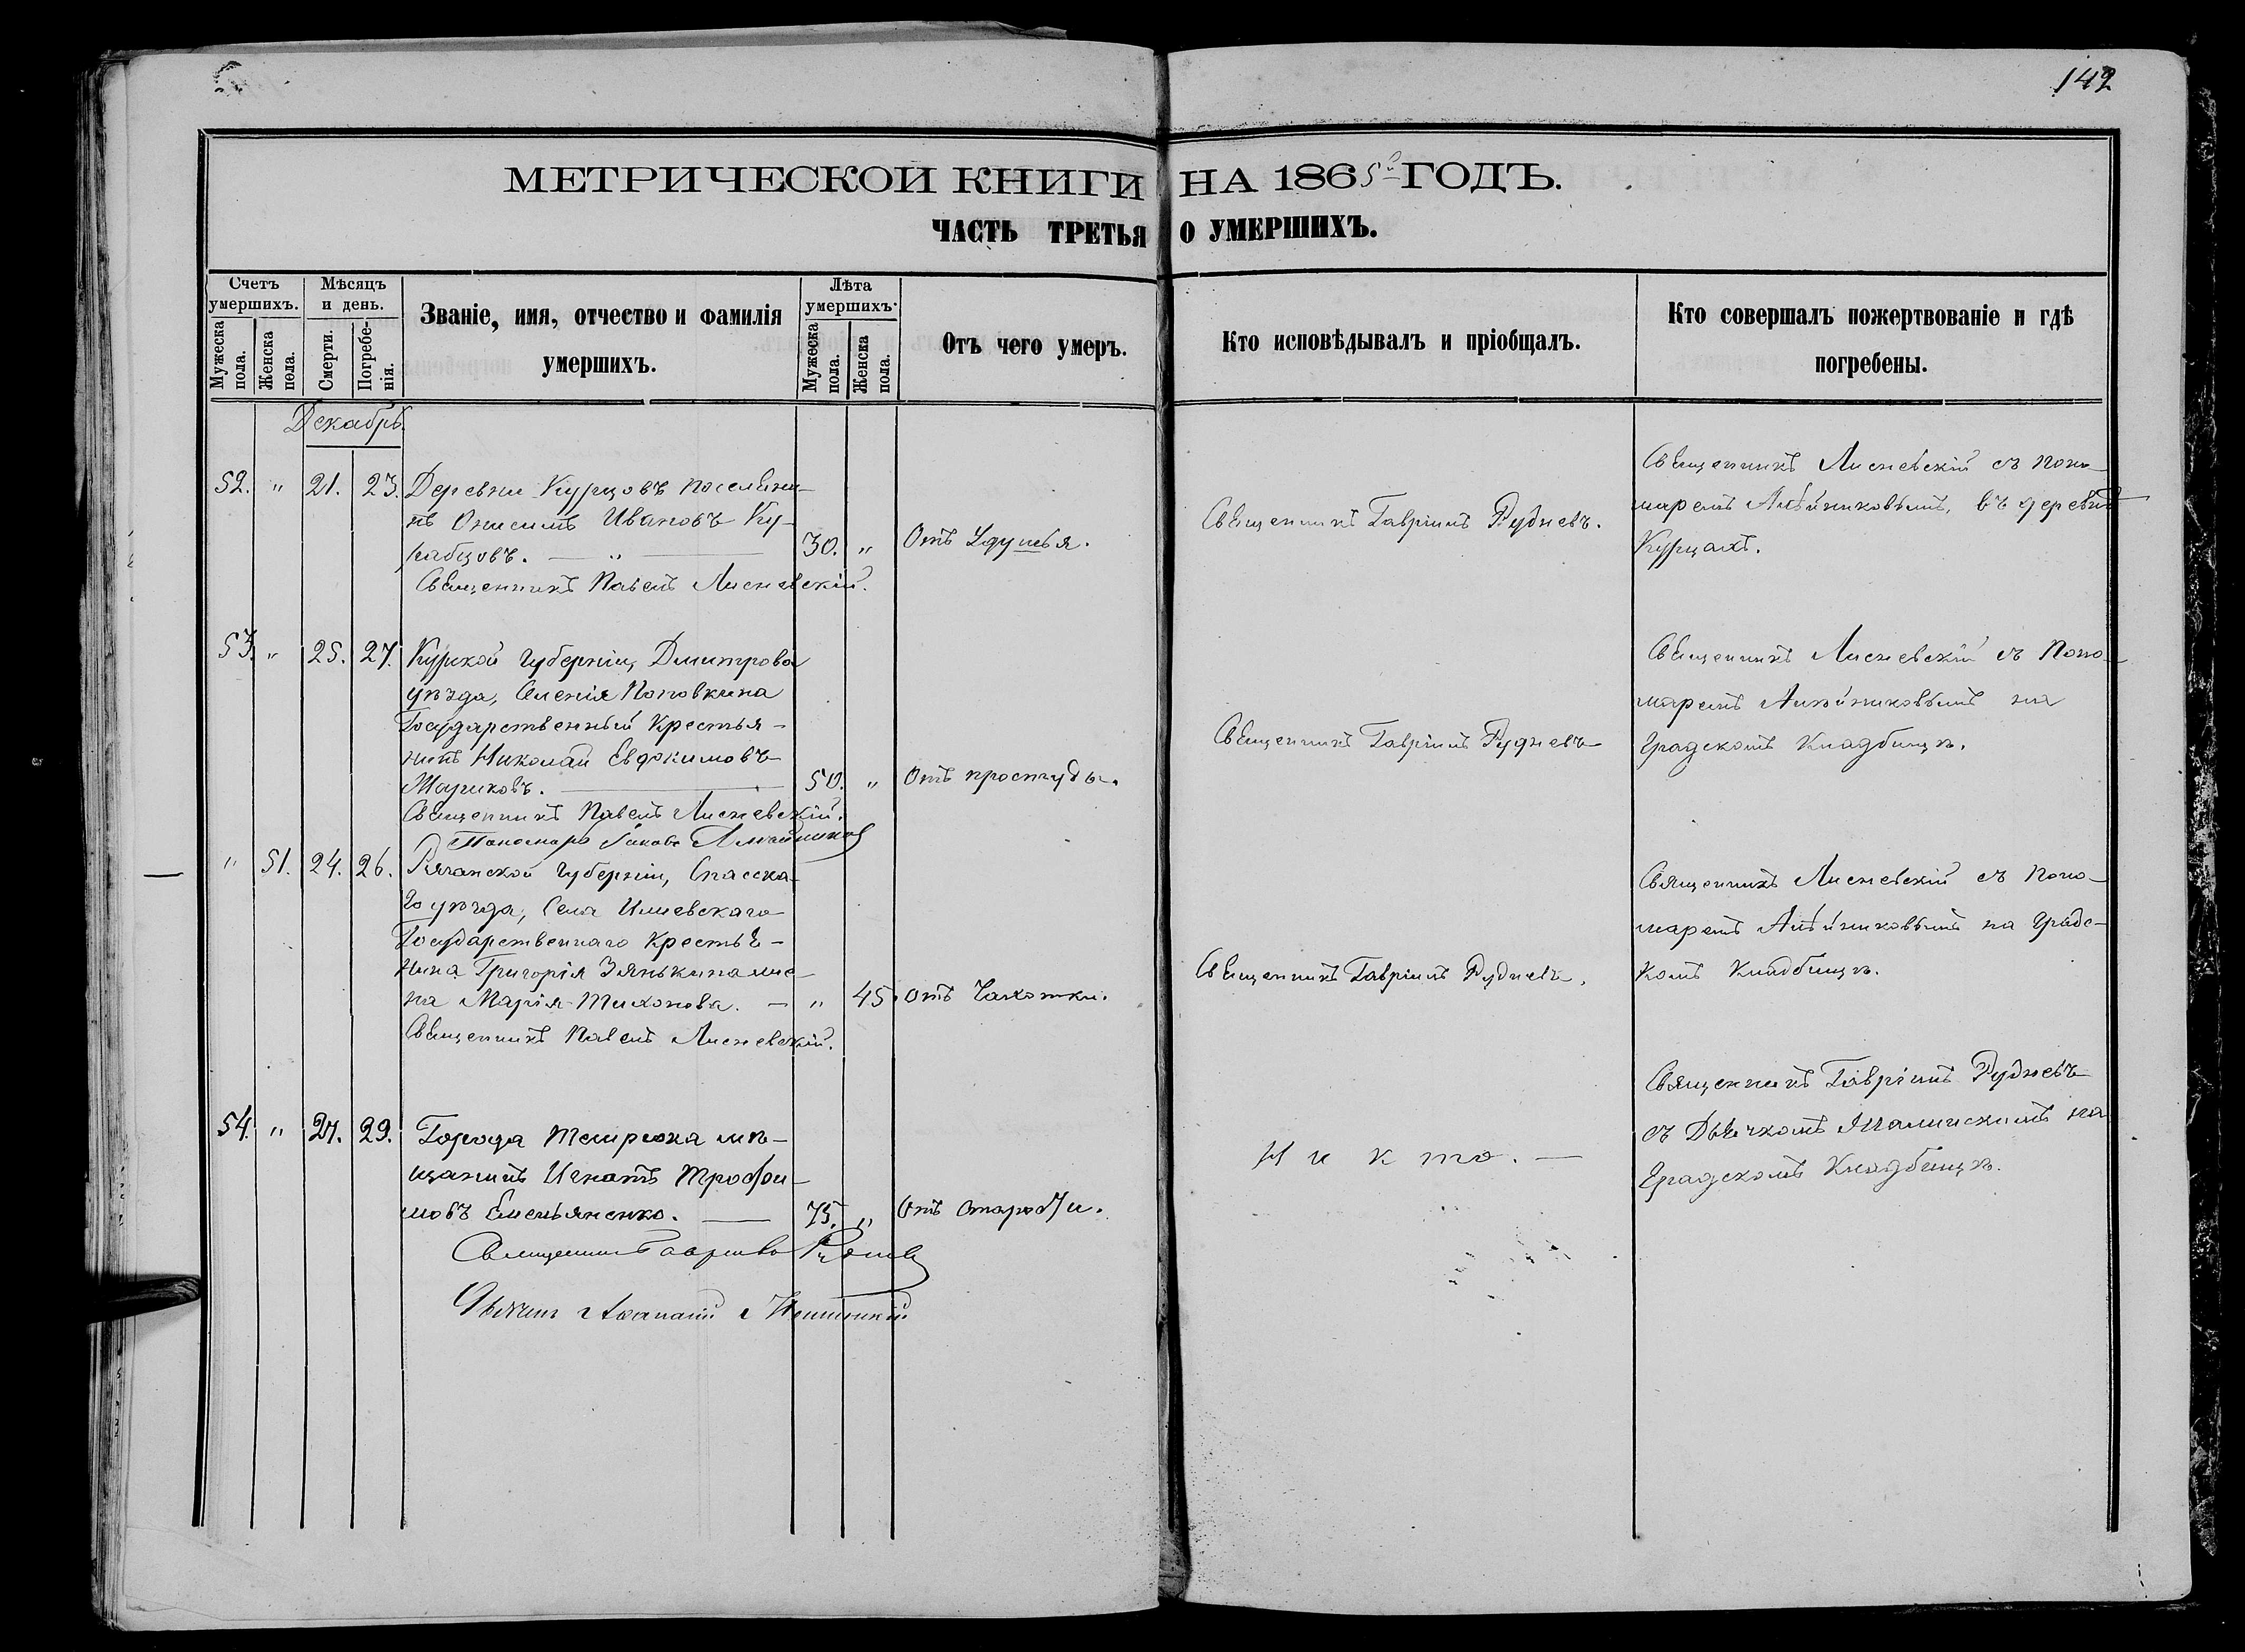 142
МЕТРИЧЕСКОЙ КНИГИ НА 1865й ГОДЪ.
ЧАСТЬ ТРЕТЬЯ О УМЕРШИХЪ.
Счетъ умершихъ.
Мужеска пола.
Женска пола.
Мѣсяцъ и день.
Смерти.
Погребенія.
Званіе, имя, отчество и фамилія
умершихъ.
Лѣта умершихъ.
Мужеска пола.
Женска пола.
Отъ чего умеръ.
Кто исповѣдывалъ и пріобщалъ.
Кто совершалъ пожертвованіе и гдѣ
погребены.
Декабрь.
52. " 21. 23. Деревни Курцовъ поселяни-
нъ Онисимъ Ивановъ Ку-
рабцовъ. — " — 30. " Отъ Удушья.
Священникъ Павелъ Лисневскій.
Священникъ Гавріилъ Рудневъ.
Священникъ Лисневскій съ поно-
маремъ въ деревнѣ
Курцахъ.
53. " 25. 27. Курской губерніи, Дмитрова
уѣзда, Селенія Поповкина
Государственный Крестья-
нинъ Николай Евдокимовъ
50. " Отъ простуды.
Священникъ Павелъ Лисневскій.
Пономарь Іаковъ
Священникъ Гавріилъ Рудневъ
Священникъ Лисневскій съ Поно-
маремъ на
Градскомъ Кладбищѣ.
" 51. 24. 26. Рязанской губерніи, Спасска-
го уѣзда, Села
Государственнаго Крестья-
нина Григорія Зянькина же-
на Марія Тихонова. — " 45. Отъ Чахотки.
Священникъ Павелъ Лисневскій.
Священникъ Гавріилъ Рудневъ.
Священникъ Лисневскій съ Поно-
маремъ на Градс-
комъ Кладбищѣ.
54. " 27. 29. Города Темрюка мѣ-
щанинъ Игнатъ Трофи-
мовъ Емельяненко. — 75. " Отъ Старости.
Священникъ Гавріилъ Рудневъ
Дьячекъ
Никто. —
Священникъ Гавріилъ Рудневъ
съ Дьячкомъ на
Градскомъ Кладбищѣ.